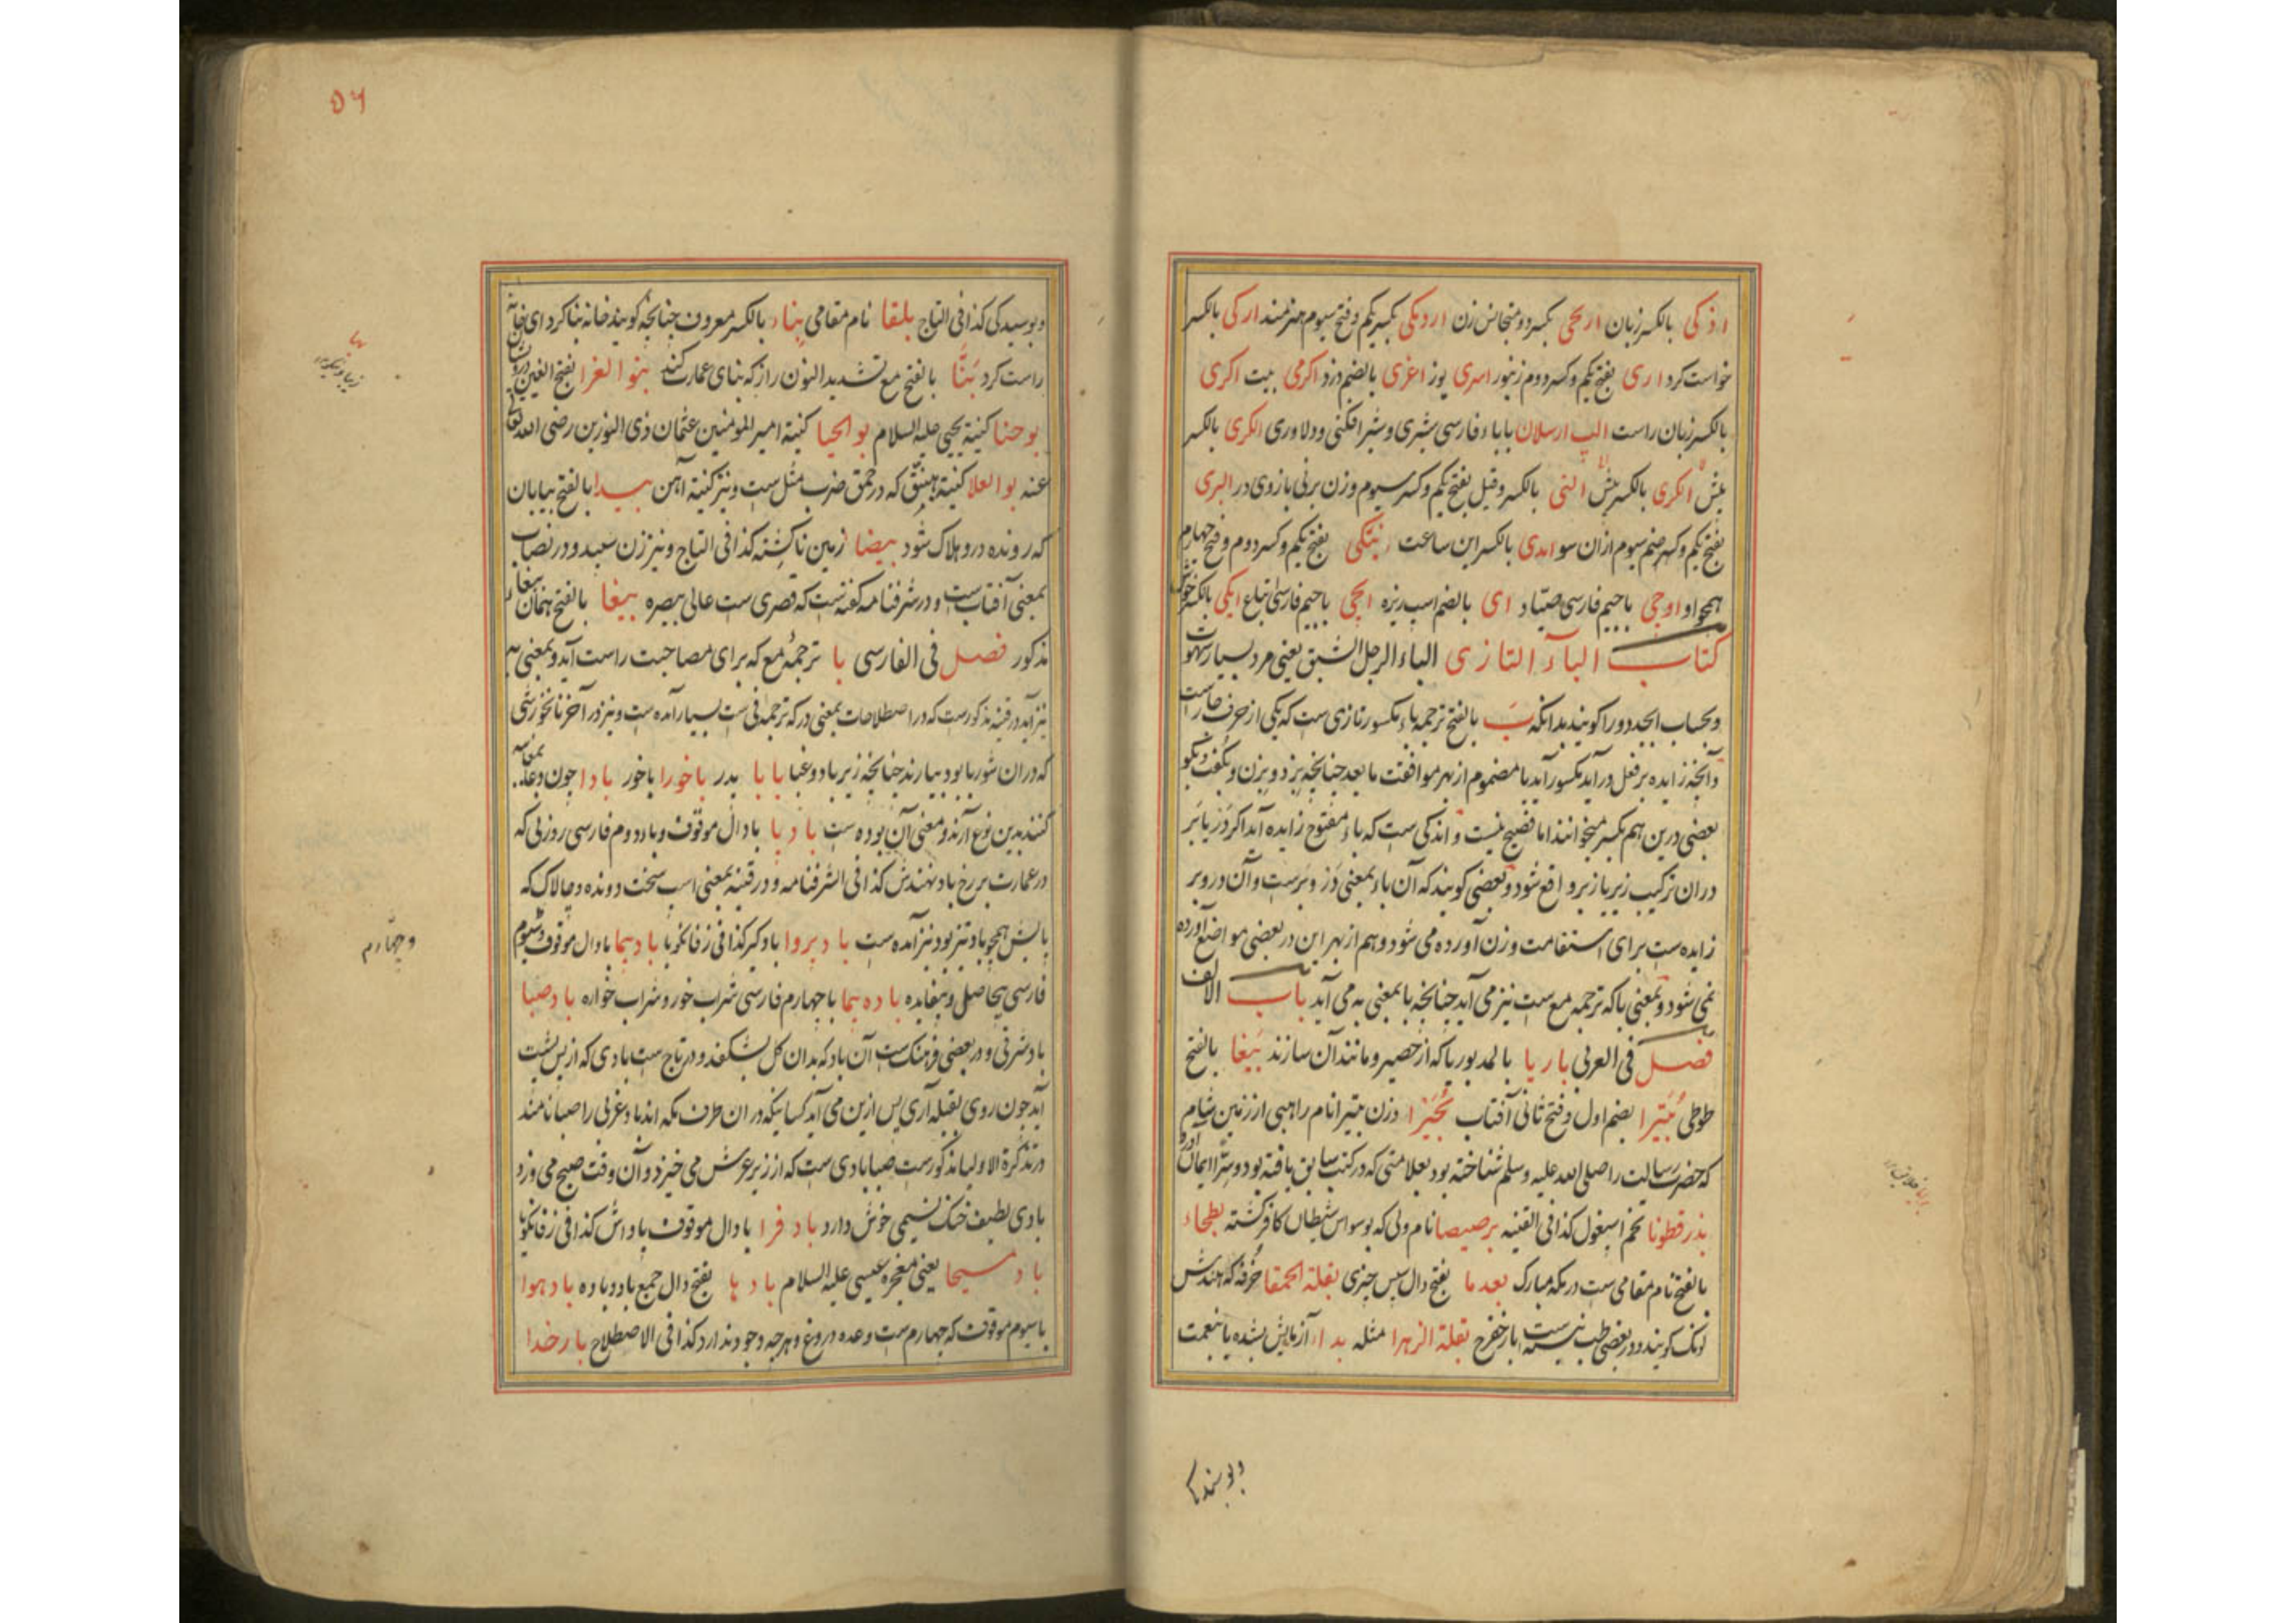 بالکسر زبان ارنجی بکسر دوم نجانس زن اردبکی بکسر یکم و فتح سیوم هنرمند ارکی بالکسر
خواست کرد اری بفتح یکم و کسر دوم زنبور اسری یوز اغری بالضم دزد اکرمی بیت اکری
بالکسر زبان راست الب ارسلان با باء فارسی شیری و شیر افکنی و دلاوری الکری بالکسر
بیش انکری بالکسر بیش التی بالکسر و قیل بفتح یکم و کسر سیوم وزن برنی بازوی در البری
بفتح یکم و کسر ضم سیوم ازان سو ایدی بالکسر این ساعت بفتح یکم و کسر دوم و فتح چهارم
همچو او اوجی با جیم فارسی صیّاد ای بالضم اسپ ریزه ایجی با جیم فارسی اتباع ایکی بالکسر
کتاب الباء التازی الباء الرجل الشبق یعنی مرد بسیار شهوت
و بحساب ابجد دو را کویند بدانکه بَ بالفتح ترجمه باء مکسور تازی ست که یکی از حرف جارست
و آنچه زایده بر فعل در آید مکسور آید یا مضموم از بهر موافقت ما بعد چنانچه بزد و بزن و بگفت و بگو
بعضی درین هم بکسر میخوانند اما فصیح نیست و اندکی ست که باء مفتوح زایده آید اکر در یا بَر
دران ترکیب زیر یا زبر واقع شود و بعضی کویند که آن باء بمعنی دَر و بَرست و آن در و بر
زایده ست برای استقامت وزن آورده می شود و هم از بهر این در بعضی مواضع آورده
نمی شود و بمعنی با که ترجمه مع ست نیز می آید چنانچه با بمعنی به می آید باب الالف
فصل فی العربی باریا بالمد بوریا که از حصیر و مانند آن سازند بَبغا بالفتح
طوطی بُتَیرا بضم اول و فتح ثانی آفتاب بُحَیرا وزن بتیرا نام راهبی از زمین شام
که حضرت رسالت را صلی الله علیه و سلم شناخته بود بعلامتی که در کتب سابق یافته بود و سرّا ایمان آورد
بذر قطونا تخم اسپغول کذا فی القنیه برصیصا نام ولی که بوسواس شیطان کافر کشته بطحاء
بالفتح نام مقامی ست در مکه مبارک بعد ما بفتح دال سپس چیزی بقلة الحمقا خرفه که هندش
لونک کویند و در بعضی طب نیست بار خفرج بقلة الزهرا مثله بداء آزمایش بنده یا بنعمت
و بوسیدکی
۵۶
و بوسیدکی کذا فی التاج بلقا نام مقامی بناء بالکسر معروف چنانچه کویند خانه بنا کرد ای خانه
راست کرد بَنّا بالفتح مع تشدید النون راز که بنای عمارت کند بنو الغرا بفتح الغین
بوحنا کنیة یحیی علیه السلام بو الحیا کنیة امیر المومنین عثمان ذی النورین رضی الله تعالی
عنه بو العلا کنیة هبنق که در حمق ضرب مثل ست و نیز کنیة آهن بیدا بالفتح بیابان
که رونده درو هلاک شود بیضا زمین ناکشته کذا فی التاج و نیز زن سپید و در نصاب
بمعنی آفتاب ست و در شرفنامه گفته است که قصری ست عالی ببصره ببغا بالفتح همان ببغا
مذکور فصل فی الفارسی با ترجمهٔ مع که برای مصاحبت راست آید و بمعنی به
نیز آید در قنیه مذکورست که در اصطلاحات بمعنی در که ترجمه فی ست بسیار آمده ست و نیز در آخر نانخورشی
که دران شوربا بود بیارند چنانچه زیربا و دوغبا بابا پدر باخورا باخور بادا چون دعا
کنند بدین نوع آرند و معنی آن بوده ست بادپا با دال موقوف و باء دوم فارسی روزنی که
در عمارت بر رخ باد نهندش کذا فی الشرفنامه و در قنیه بمعنی اسپ سخت دونده و چالاک که
پایش همچو باد تیز بود نیز آمده ست بادپروا بادگیر کذا فی زفانگویا بادپیما با دال موقوف و سیوم
و چهارم
فارسی بیحاصل و بیفایده باده پیما با چهارم فارسی شراب خور و شراب خواره باد صبا
باد شرقی و در بعضی فرهنگ ست آن باد که بدان کل بشکفد و در تاج ست بادی که از پس پشت
آید چون روی بقبله آری پس ازین می آید کسانیکه دران طرف مکه اند باد غربی را صبا نامند
در تذکرة الاولیا مذکورست صبا بادی ست که از زیر عرش می خیزد و آن وقت صبح می وزد
بادی لطیف خنک نسیمی خوش دارد باد فرا با دال موقوف باداش کذا فی زفانگویا
باد مسیحا یعنی معجزه عیسی علیه السلام بادها بفتح دال جمع باد و باده باد هوا
با سیوم موقوف که چهارم ست وعده دروغ و هرچه وجود ندارد کذا فی الاصطلاح بار خدا